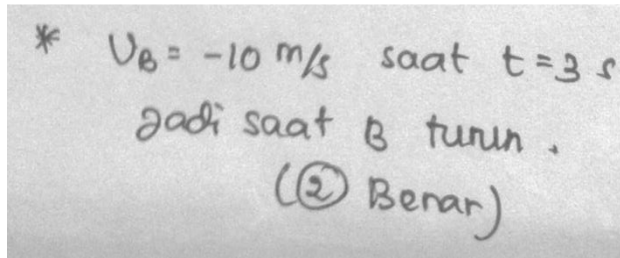 * UB = -10 m/s saat t = 3 s
Jadi saat B turun.
(② Benar)